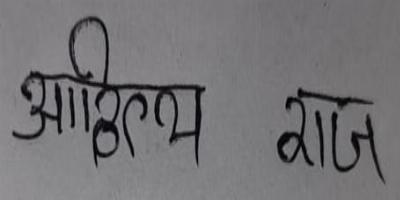 आदित्य राज